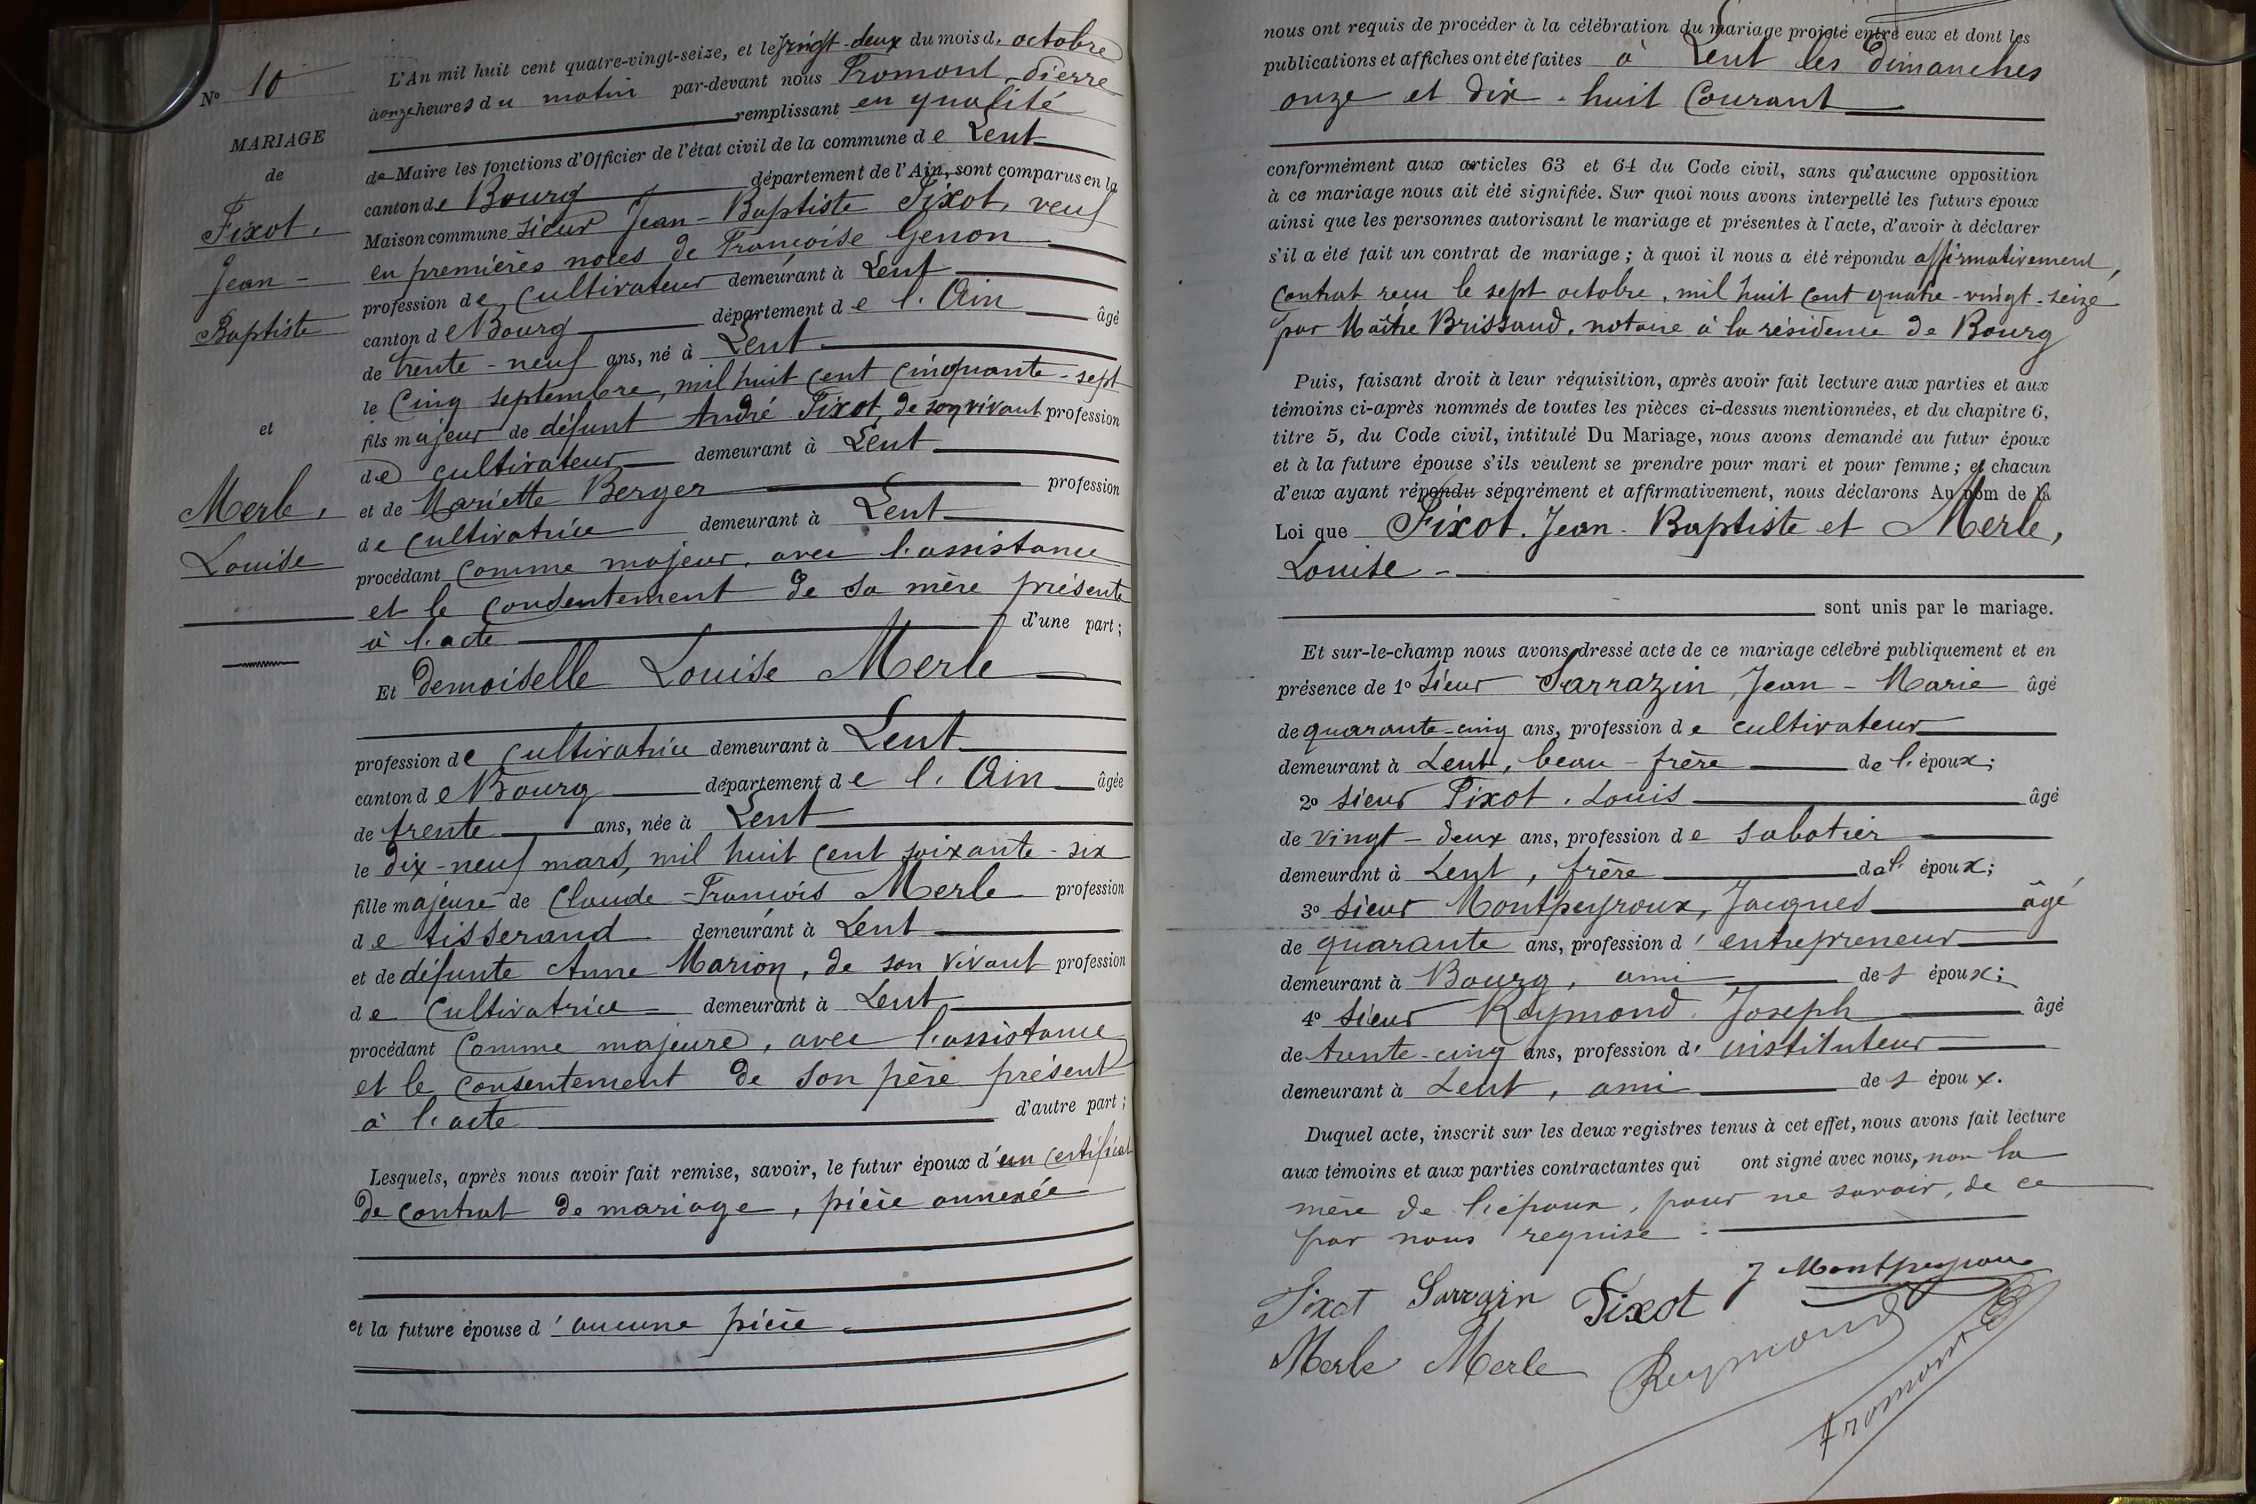 N° 10
MARIAGE
de
Fixot,
Jean-
Baptiste
et
Merle,
Louise
L'An mil huit cent quatre-vingt-seize, et le vingt-deux du mois d'octobre
à onze heures du matin par-devant nous Fromont, Pierre
remplissant en qualité
de Maire les fonctions d'Officier de l'état civil de la commune de Lent
canton de Bourg département de l'Ain, sont comparus en la
Maison commune sieur Jean-Baptiste Fixot, veuf
en premières noces de Françoise Genon
profession de cultivateur demeurant à Lent
canton de Bourg département de l'Ain âgé
de trente-neuf ans, né à Lent
le cinq septembre, mil huit cent cinquante-sept
fils majeur de défunt André Fixot, de son vivant profession
de cultivateur demeurant à Lent
et de Mariette Berger profession
de cultivatrice demeurant à Lent
procédant comme majeur, avec l'assistance
et le consentement de sa mère présente
à l'acte d'une part;
Et demoiselle Louise Merle
profession de cultivatrice demeurant à Lent
canton de Bourg département de l'Ain âgée
de trente ans, née à Lent
le dix-neuf mars, mil huit cent soixante-six
fille majeure de Claude-François Merle profession
de tisserand demeurant à Lent
et de défunte Anne Marion, de son vivant profession
de cultivatrice demeurant à Lent
procédant comme majeure, avec l'assistance
et le consentement de son père présent
à l'acte d'autre part;
Lesquels, après nous avoir fait remise, savoir, le futur époux d'un certificat
de contrat de mariage, pièce annexée
et la future épouse d'aucune pièce
nous ont requis de procéder à la célébration du mariage projeté entre eux et dont les
publications et affiches ont été faites à Lent les dimanches
onze et dix-huit courant
conformément aux articles 63 et 64 du Code civil, sans qu'aucune opposition
à ce mariage nous ait été signifiée. Sur quoi nous avons interpellé les futurs époux
ainsi que les personnes autorisant le mariage et présentes à l'acte, d'avoir à déclarer
s'il a été fait un contrat de mariage; à quoi il nous a été répondu affirmativement,
contrat reçu le sept octobre, mil huit cent quatre-vingt-seize
par Maître Brissaud, notaire à la résidence de Bourg
Puis, faisant droit à leur réquisition, après avoir fait lecture aux parties et aux
témoins ci-après nommés de toutes les pièces ci-dessus mentionnées, et du chapitre 6,
titre 5, du Code civil, intitulé Du Mariage, nous avons demandé au futur époux
et à la future épouse s'ils veulent se prendre pour mari et pour femme; et chacun
d'eux ayant répondu séparément et affirmativement, nous déclarons Au nom de la
Loi que Fixot, Jean-Baptiste et Merle,
Louise-
sont unis par le mariage.
Et sur-le-champ nous avons dressé acte de ce mariage célébré publiquement et en
présence de 1° sieur Sarrazin, Jean-Marie âgé
de quarante-cinq ans, profession de cultivateur
demeurant à Lent, beau-frère de l'époux;
2° sieur Fixot, Louis âgé
de vingt-deux ans, profession de sabotier
demeurant à Lent, frère de l'époux;
3° sieur Montpeyroux, Jacques âgé
de quarante ans, profession d'entrepreneur
demeurant à Bourg, ami des époux;
4° sieur Raymond Joseph âgé
de trente-cinq ans, profession d'instituteur
demeurant à Lent, ami des époux.
Duquel acte, inscrit sur les deux registres tenus à cet effet, nous avons fait lecture
aux témoins et aux parties contractantes qui ont signé avec nous, non la
mère de l'époux, pour ne savoir, de ce
par nous requise.
Fixot Sarrazin Fixot J Montpeyroux
Merle Merle Reymond Fromont